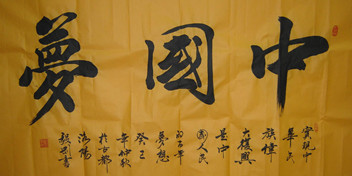 中國夢
實現中
華民
族偉
大復興
是中
國人民
百年
夢想
癸巳
年仲秋
於古都
洛陽
書